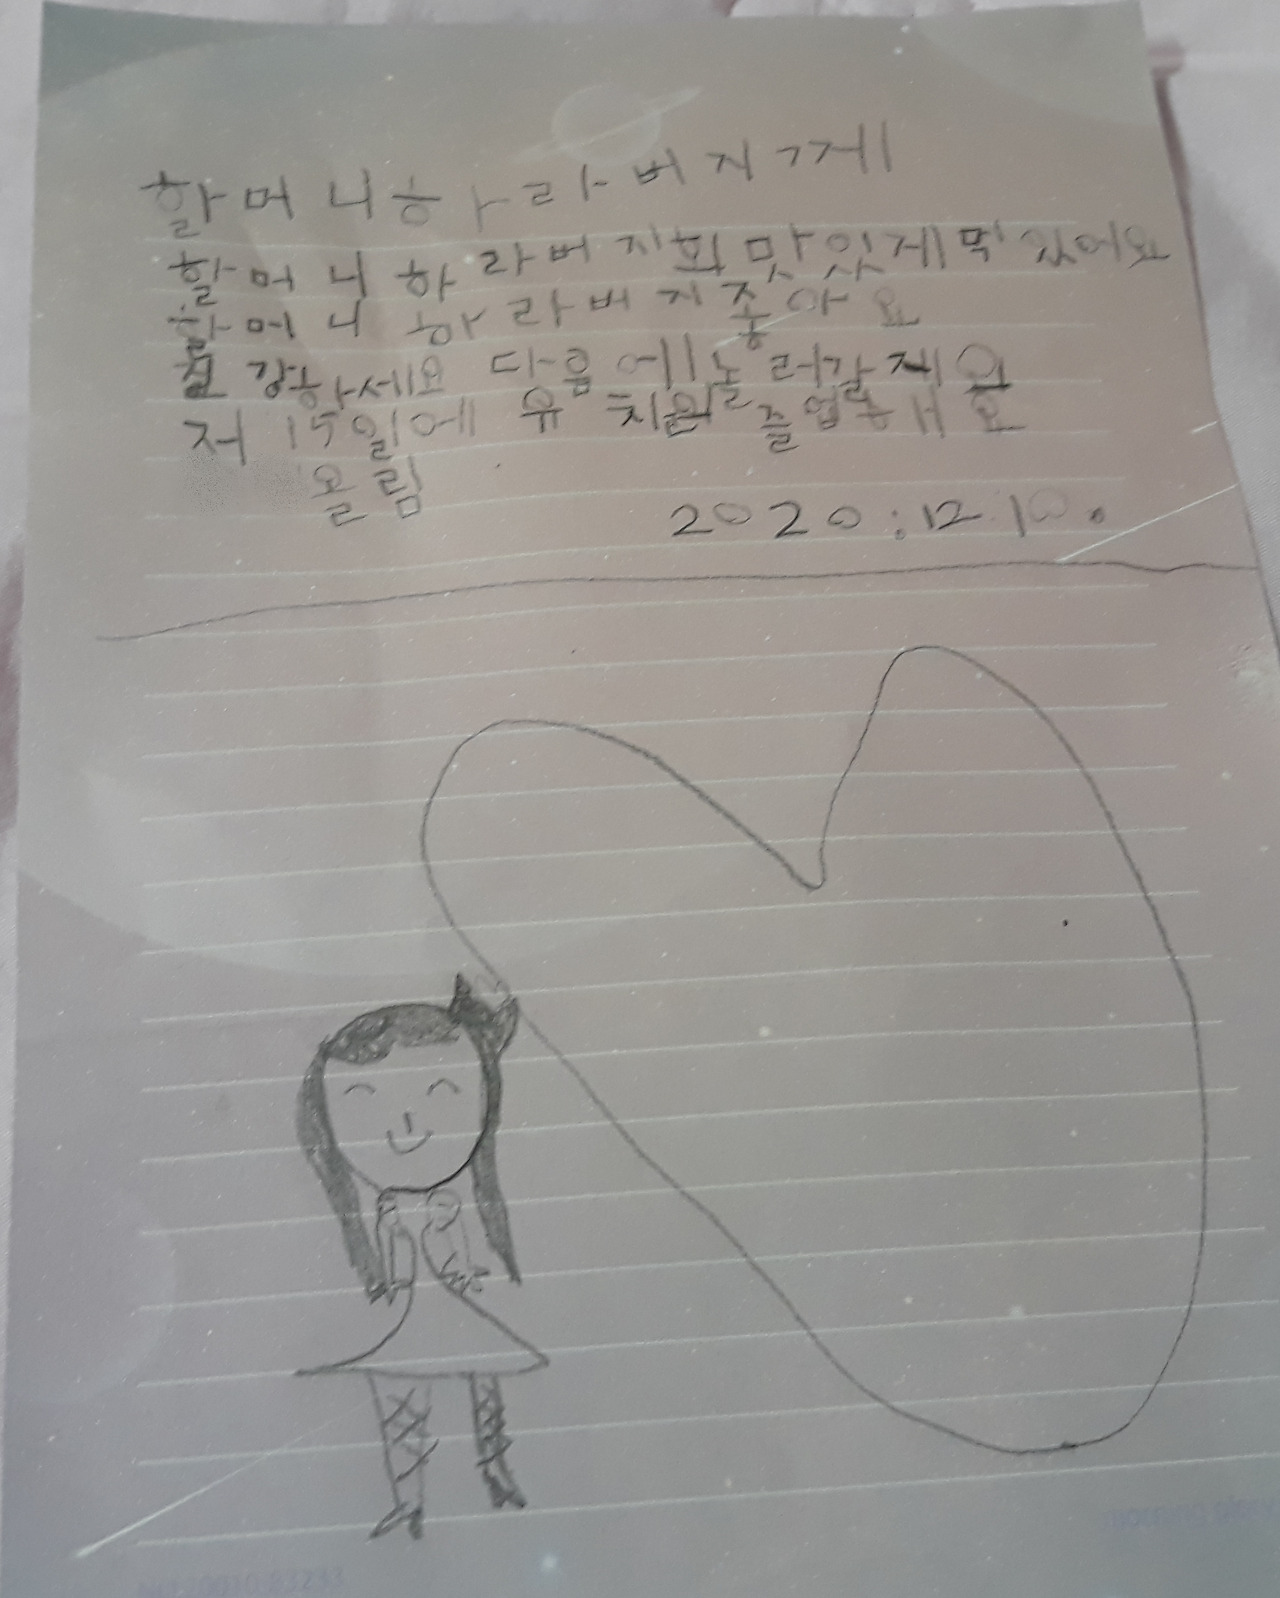 할머니하라버지ㄱ게
할머니하라버지회맛있게먹있어요
할머니 하라버지좋아요
강하세요 다음에놀러갈게요
저 15일에 유치원 졸업해요
올림
2020:12.10.